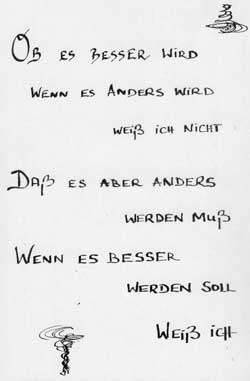 Ob es besser wird
wenn es Anders wird
weiß ich nicht
Daß es aber anders
werden muß
Wenn es besser
werden soll
Weiß ich